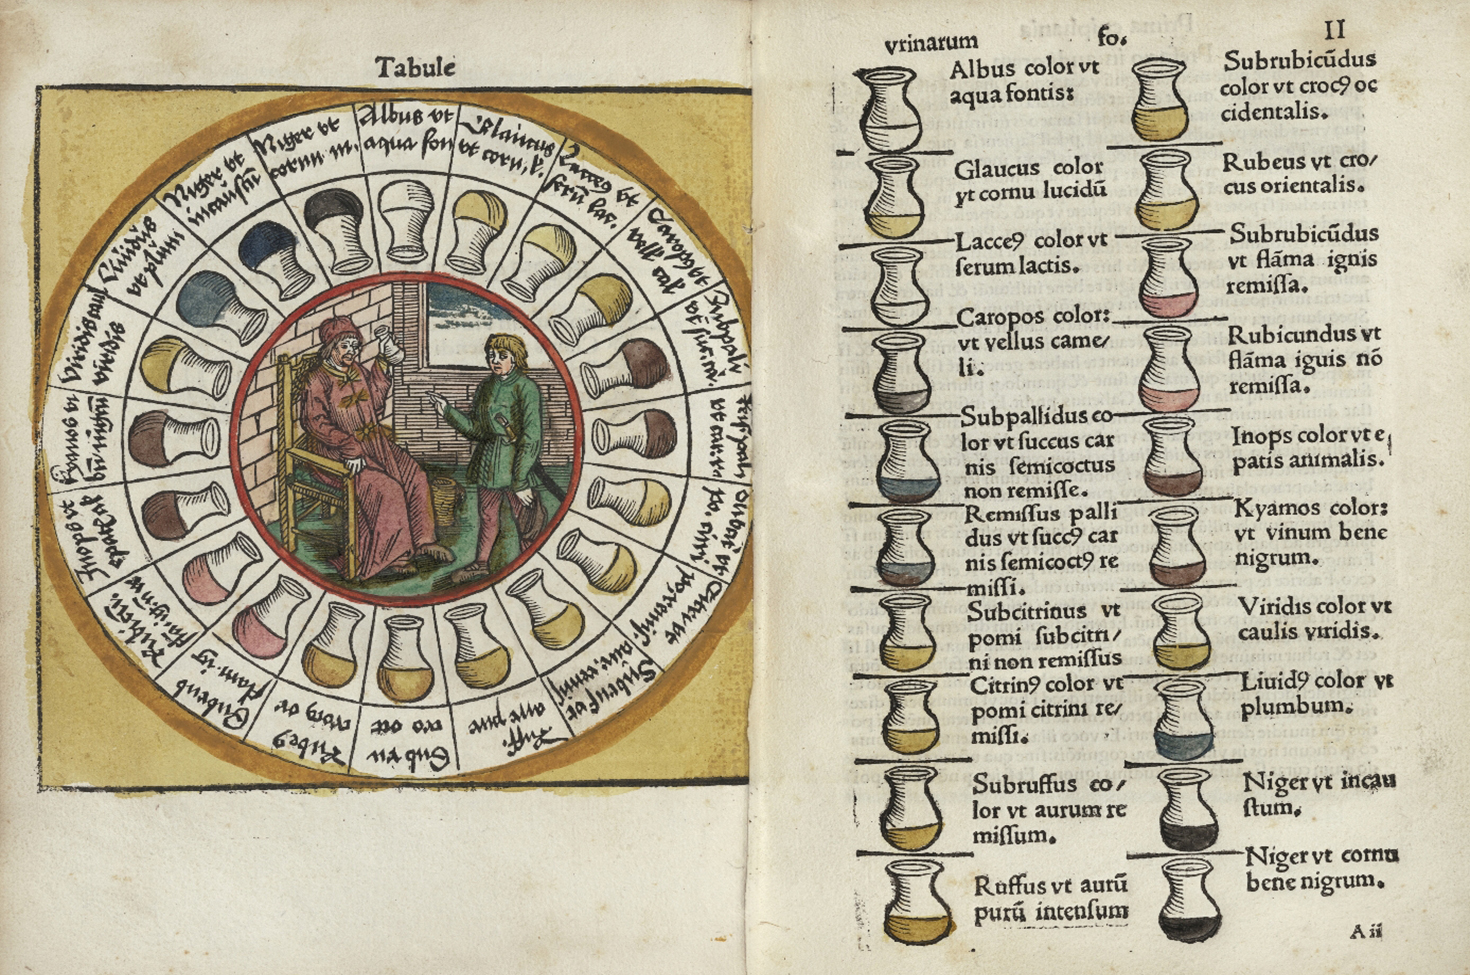 Tabule
Albus vt
aqua fon
Glaucus
vt corn, l.
Lacce9 vt
serũ lac.
Subpali
Rube9
Subru
Ruff.
Kyamos vt
Inops vt
Viridis
Liuidus
vt plum
Niger vt
incaustũ
Niger vt
cornu m.
vrinarum fo. II
Albus color vt
aqua fontis:
Glaucus color
yt cornu lucidũ
Lacce9 color vt
serum lactis.
Caropos color:
vt vellus came/
li.
Subpallidus co
lor vt succus car
nis semicoctus
non remisse.
Remissus palli
dus vt succ9 car
nis semicoct9 re
missi.
Subcitrinus vt
pomi subcitri/
ni non remissus
Citrin9 color vt
pomi citrini re/
missi.
Subruffus co/
lor vt aurum re
missum.
Ruffus vt aurũ
purũ intensum
Subrubicũdus
color vt croc9 oc
cidentalis.
Rubeus vt cro/
cus orientalis.
Subrubicũdus
vt flãma ignis
remissa.
Rubicundus vt
flãma iguis nõ
remissa.
Inops color vt e
patis animalis.
Kyamos color:
vt vinum bene
nigrum.
Viridis color vt
caulis viridis.
Liuid9 color vt
plumbum.
Niger vt incau
stum.
Niger vt cornu
bene nigrum.
A ii